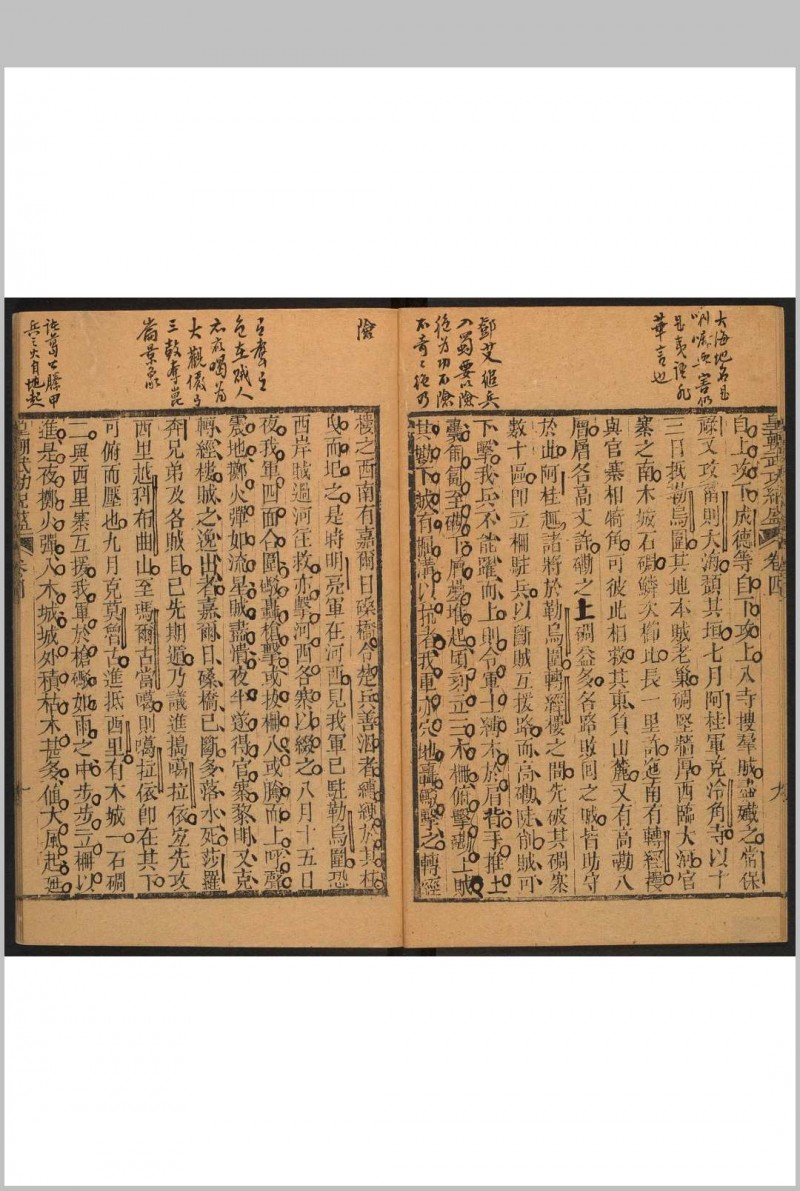 自上攻下成德等自下攻上入寺搜羣賊盡殲之常保
祿又攻甯則大海頹其垣七月阿桂軍克冷角寺以十
三日抵勒烏圍其地本賊老巢碉堅牆厚西臨大海官
寨之南木城石碉鱗次櫛比長一里許迤南有轉經樓
與官寨相犄角可彼此相救其東負山麓又有高磡八
層層各高丈許磡之上碉益多各路敗回之賊皆助守
於此阿桂趣諸將於勒烏圍轉經樓之間先破其碉寨
數十區即立柵駐兵以斷賊互援路而高磡陡削賊可
下擊我兵不能躍而上則令軍士縛木於肩背手推土
囊匍匐至磡下層壘堆起頃刻立三木柵俯擊磡上賊
其磡下賊有掘溝以抗者我軍亦穴地轟毆擊之轉經
皇朝武功紀盛
卷四
九
樓之西南有嘉爾日磉橋令楚兵善泅者縛纜於其柱
曳而圯之是時明亮軍在河西見我軍已駐勒烏圍恐
西岸賊過河往救亦擊河西各寨以綴之八月十五日
夜我軍四面合圍礮轟槍擊或拔柵入或騰而上呼聲
震地擲火彈如流星賊盡潰夜半遂得官寨黎明又克
轉經樓賊之逸出者嘉爾日磉橋已斷多落水死莎羅
奔兄弟及各賊目已先期遁乃議進搗噶拉依宜先攻
西里越科布曲山至瑪爾古當噶則噶拉依即在其下
可俯而壓也九月克莫魯古進抵西里有木城一石碉
二與西里寨互援我軍於槍礮如雨之中步步立柵以
進是夜擲火彈入木城城外積枯木甚多值大風起延
皇朝武功紀盛
卷四
十
大海地名是
是夷語非
華言也
鄧艾縋兵
入蜀要以險
險
三鼓奪崑
崙景象